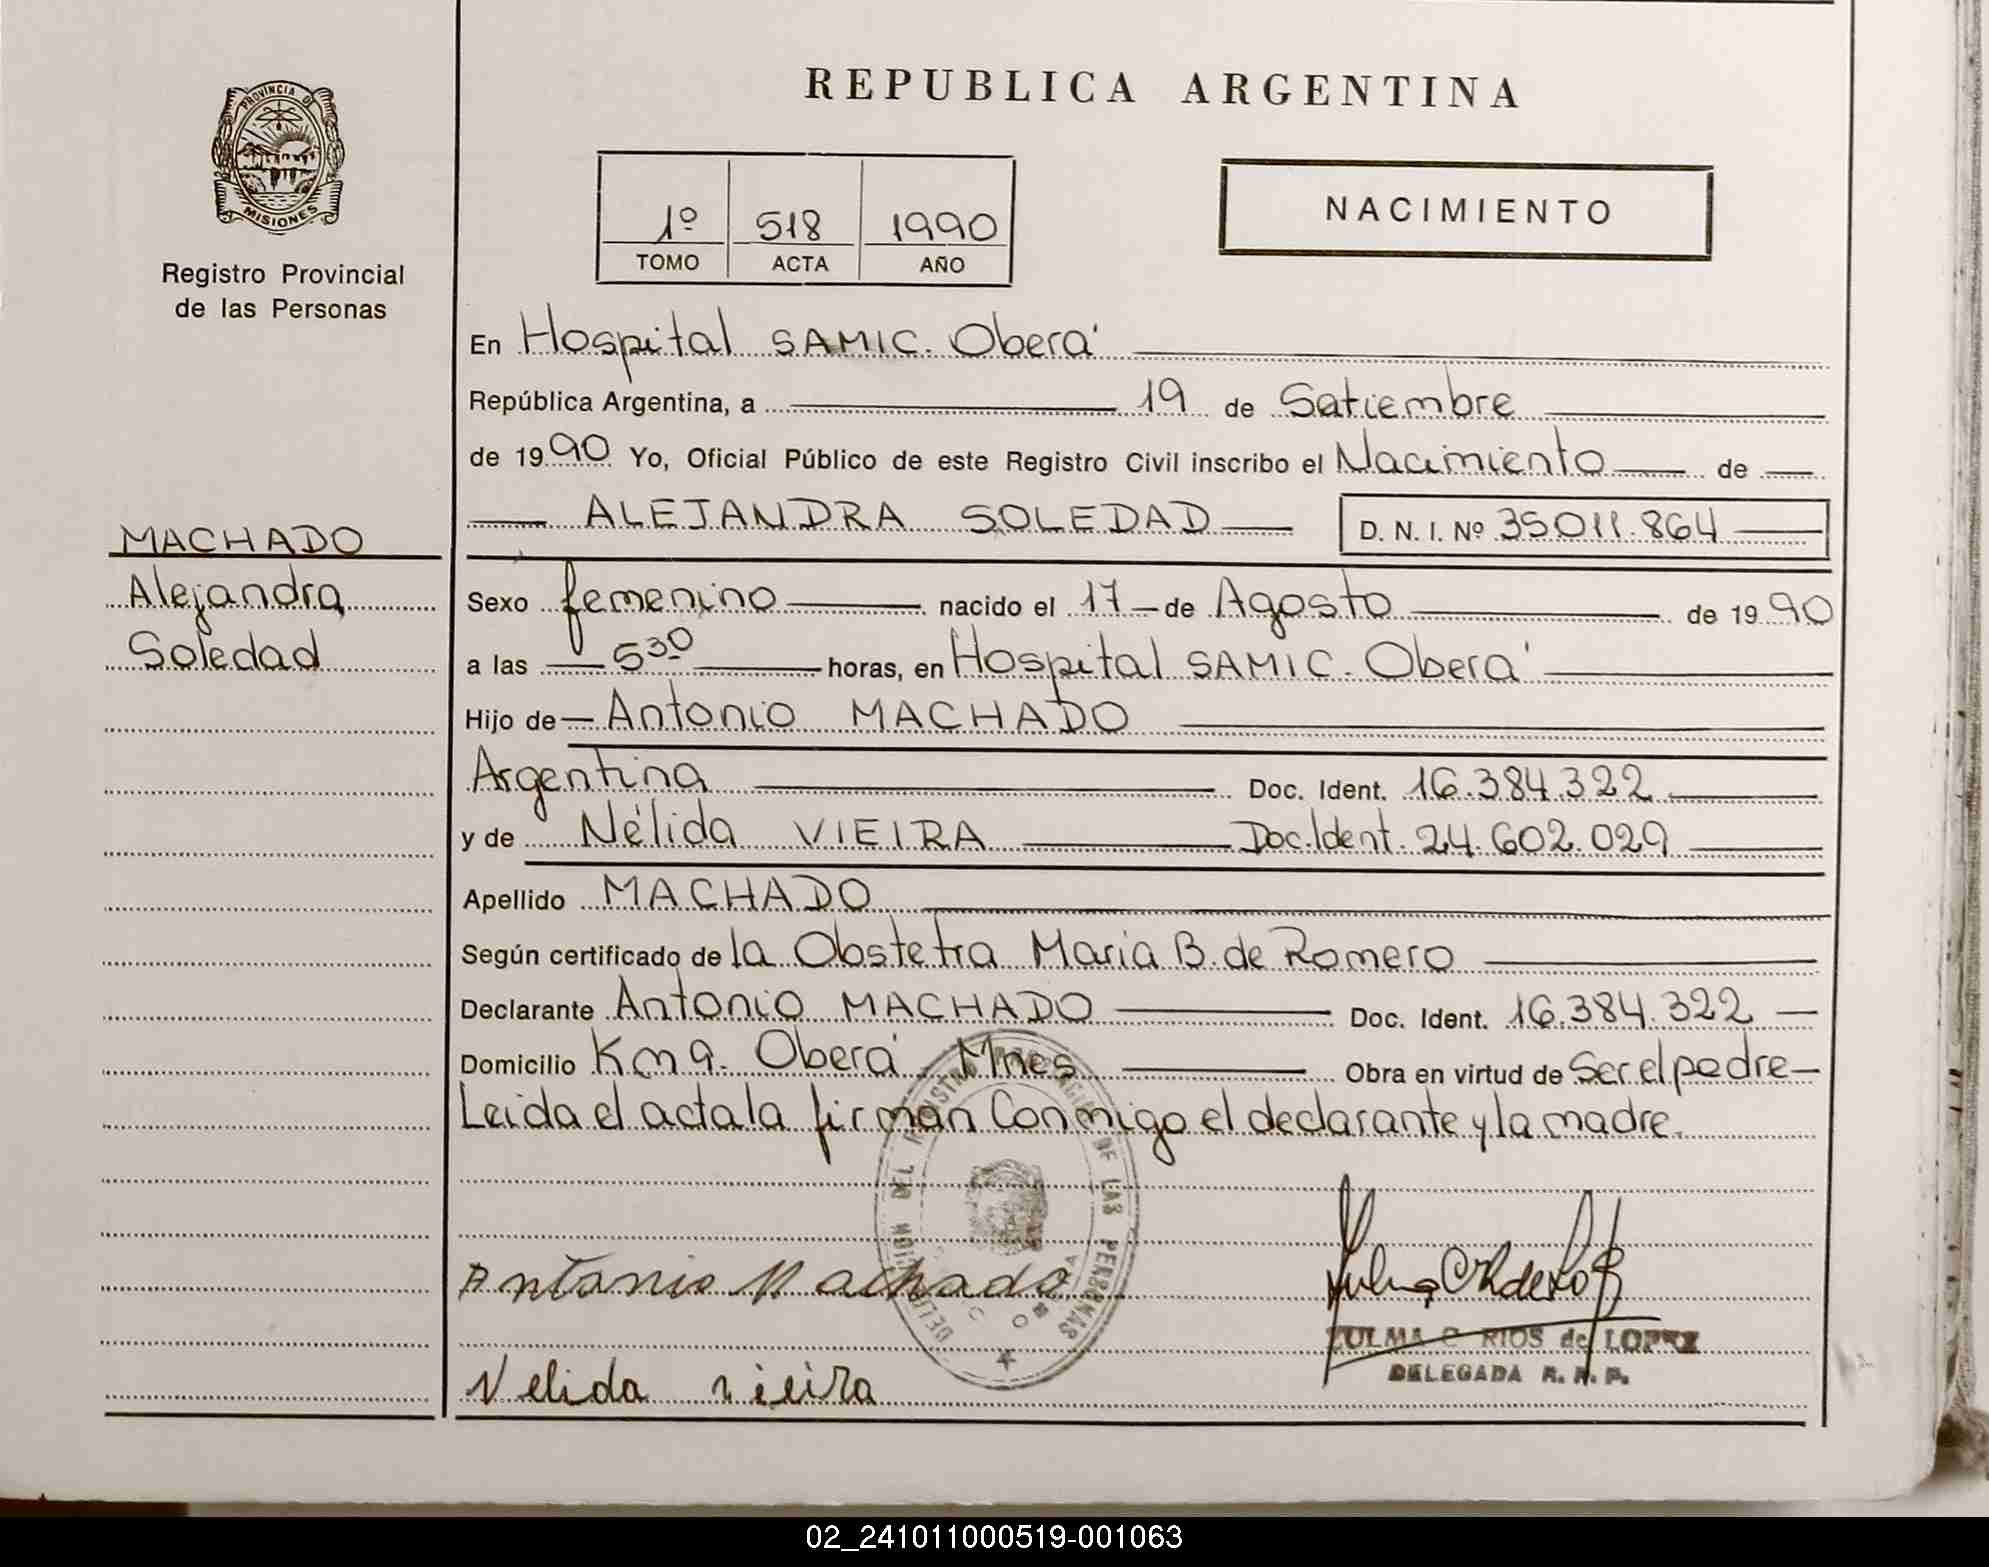 REPUBLICA ARGENTINA
PROVINCIA DE
MISIONES
Registro Provincial
de las Personas
1º 518 1990
TOMO ACTA AÑO
NACIMIENTO
En Hospital SAMIC. Oberá
República Argentina, a 19 de Satiembre
de 1990 Yo, Oficial Público de este Registro Civil inscribo el Nacimiento de
ALEJANDRA SOLEDAD D. N. I. Nº 35011.864
MACHADO
Alejandra
Soledad
Sexo femenino nacido el 17 de Agosto de 1990
a las 5 30 horas, en Hospital SAMIC. Oberá
Hijo de Antonio MACHADO
Argentina Doc. Ident. 16.384.322
y de Nélida VIEIRA Doc. Ident. 24.602.029
Apellido MACHADO
Según certificado de la Obstetra Maria B. de Romero
Declarante Antonio MACHADO Doc. Ident. 16.384.322
Domicilio Km 9. Oberá Mnes Obra en virtud de Ser el padre
Leida el acta la firman Conmigo el declarante y la madre.
DEL REGISTRO DE LAS PERSONAS
Antonio Machado
ZULMA C RIOS de LOPEZ
DELEGADA R. P. P.
Nelida vieira
02_241011000519-001063